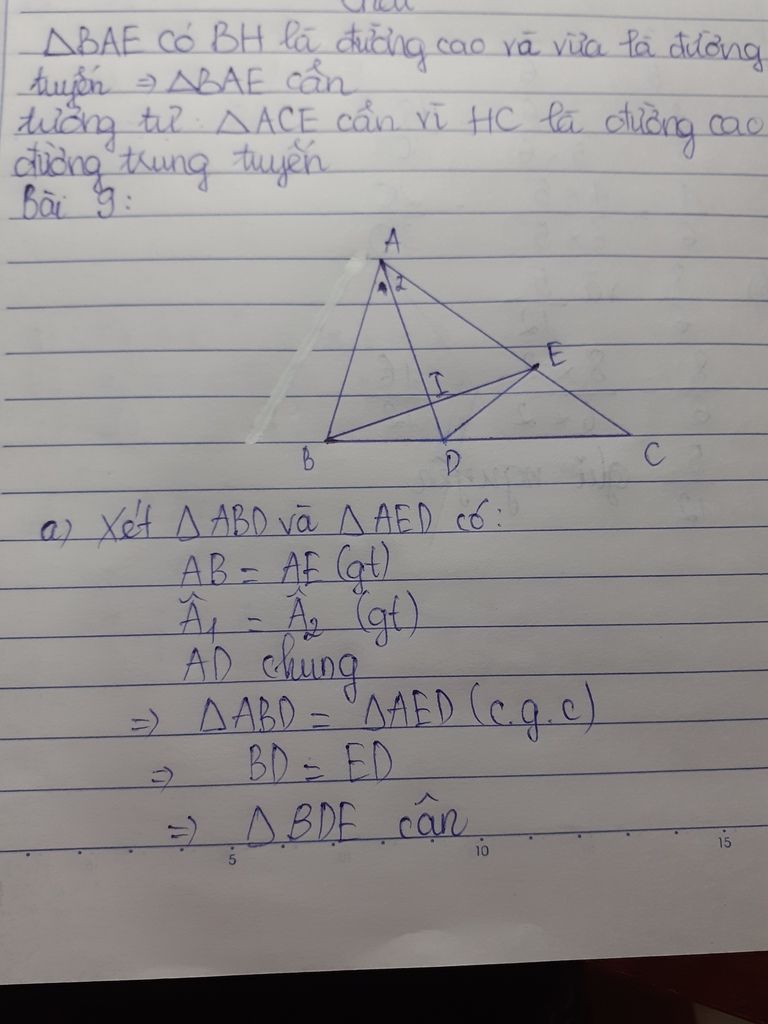 ΔBAE có BH là đường cao và vừa là đường
tuyến => ΔBAE cần
tương tự: ΔACE cân vì HC là đường cao
đường trung tuyến
Bài 9:
A
2
E
I
B
D
C
a) Xét ΔABD và ΔAED có:
AB = AE (gt)
Â1 = Â2 (gt)
AD chung
=> ΔABD = ΔAED (c.g.c)
=> BD = ED
=> ΔBDE cân
5
10
15